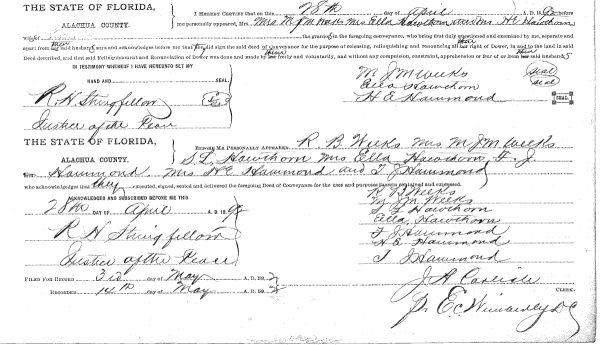 THE STATE OF FLORIDA,
ALACHUA COUNTY.
I HEREBY CERTIFY that on this 28th day of April A.D. 189 before
me personally appeared, Mrs M. J M Weeks Mrs Ella Hawthorn and Mrs H E Hawthorn
the grantors in the foregoing conveyance, who being first duly examined and examined by me, separate and
apart from their said husbands and acknowledges before me they sign the said deed of conveyance for the purpose of releasing, relinquishing and renouncing all their right of Dower, in and to the land in said
Deed described, and that said Relinquishment and Renunciation of Dower was done and made by their free and voluntarily, and without any compulsion, constraint, apprehension or fear of or from their said husbands
IN TESTIMONY WHEREOF I HAVE HEREUNTO SET MY
HAND AND SEAL.
R H Stringfellow
Justice of the Peace
M J M Weeks seal
Ella Hawthorn seal
H E Hammond SEAL.
THE STATE OF FLORIDA,
ALACHUA COUNTY.
BEFORE ME PERSONALLY APPEARED, R. B. Weeks Mrs M J M Weeks
S L Hawthorn Mrs Ella Hawthorn F. J.
Hammond, Mrs H E Hammond and T J Hammond
who acknowledges that they executed, signed, sealed and delivered the foregoing Deed of Conveyance for the uses and purposes therein contained and expressed.
ACKNOWLEDGED AND SUBSCRIBED BEFORE ME THIS
28th DAY OF April A. D. 18
R H Stringfellow
Justice of the Peace
R B Weeks
M J M Weeks
S L Hawthorn
Ella Hawthorn
F J Hammond
H E Hammond
T J Hammond
FILED FOR RECORD 3rd day of May A. D. 189
RECORDED 14th day of May A. D. 189
J A Carlisle
CLERK.
Pr E C Wimberly D C